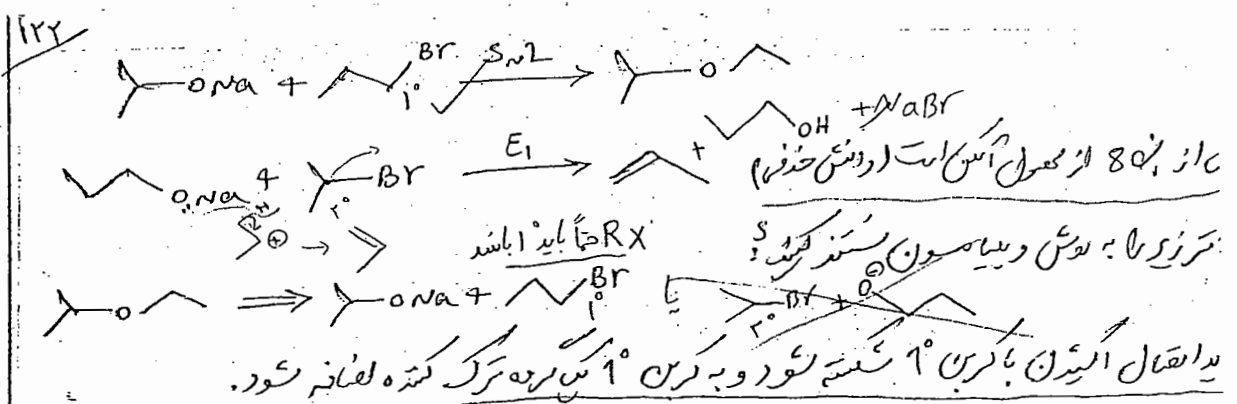 ۱۲۲
ONa + Br 1° SN2 → O
+ NaBr
ONa + Br ۳° E1 → + OH
از 80% از محصول آلکن است (واکنش حذفی)
H ⊕ → RX حتماً باید 1° باشد
ترزیر را به روش ویلیامسون سنتز کنید؟
O ⇒ ONa + Br 1° یا Br ۳° + O⊖
اتصال اکسیژن با کربن 1° شکسته شود و به کربن 1° یک گروه ترک کننده اضافه شود.